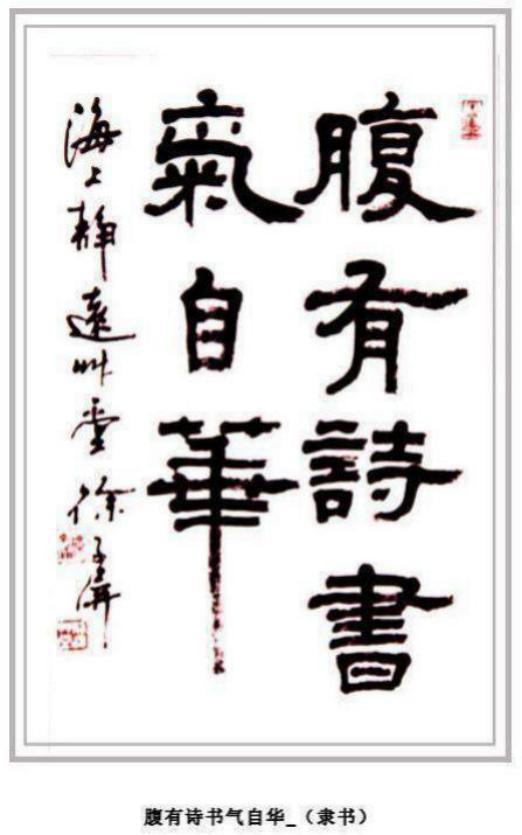 腹有詩書
氣自華
海上靜遠艸堂 徐
腹有诗书气自华_（隶书）